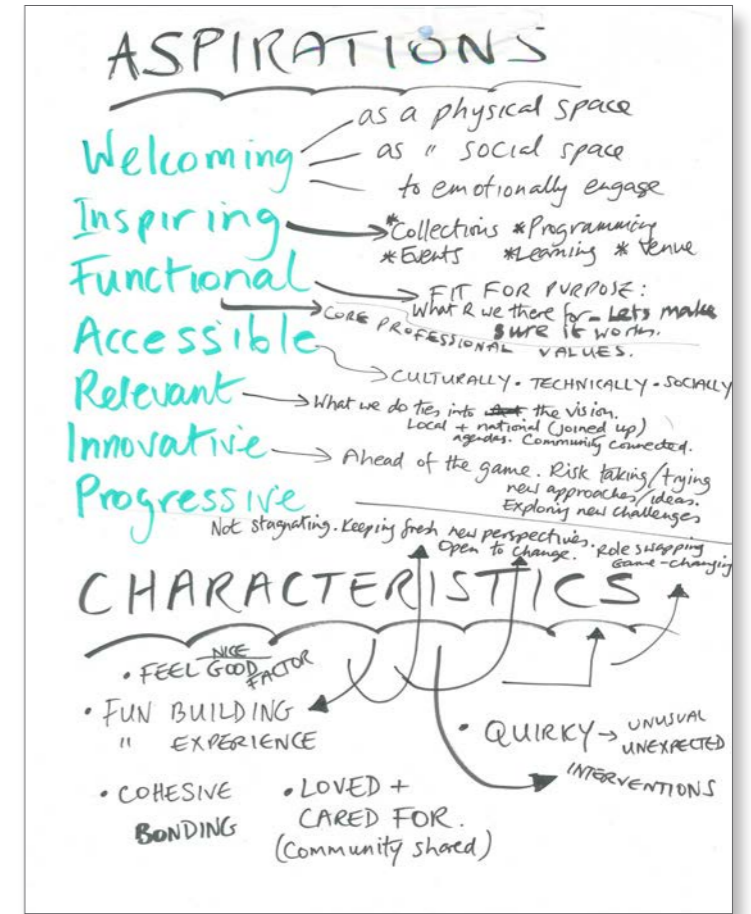 ASPIRATIONS
Welcoming
as a physical space
as " social space
to emotionally engage
Inspiring
*Collections *Programming
*Events *Learning * Venue
Functional
FIT FOR PURPOSE:
What R we there for - Lets make
sure it works.
CORE PROFESSIONAL VALUES.
Accessible
CULTURALLY • TECHNICALLY • SOCIALLY
Relevant
What we do ties into the vision.
Local + national (joined up)
agendas. Community connected.
Innovative
Ahead of the game. Risk taking/trying
new approaches/ideas.
Exploring new challenges
Progressive
Not stagnating. Keeping fresh new perspectives.
Open to change. Role swapping
Game-changing
CHARACTERISTICS
NICE
• FEEL GOOD FACTOR
• FUN BUILDING
" EXPERIENCE
• QUIRKY → UNUSUAL
UNEXPECTED
INTERVENTIONS
• COHESIVE
BONDING
• LOVED +
CARED FOR.
(Community shared)